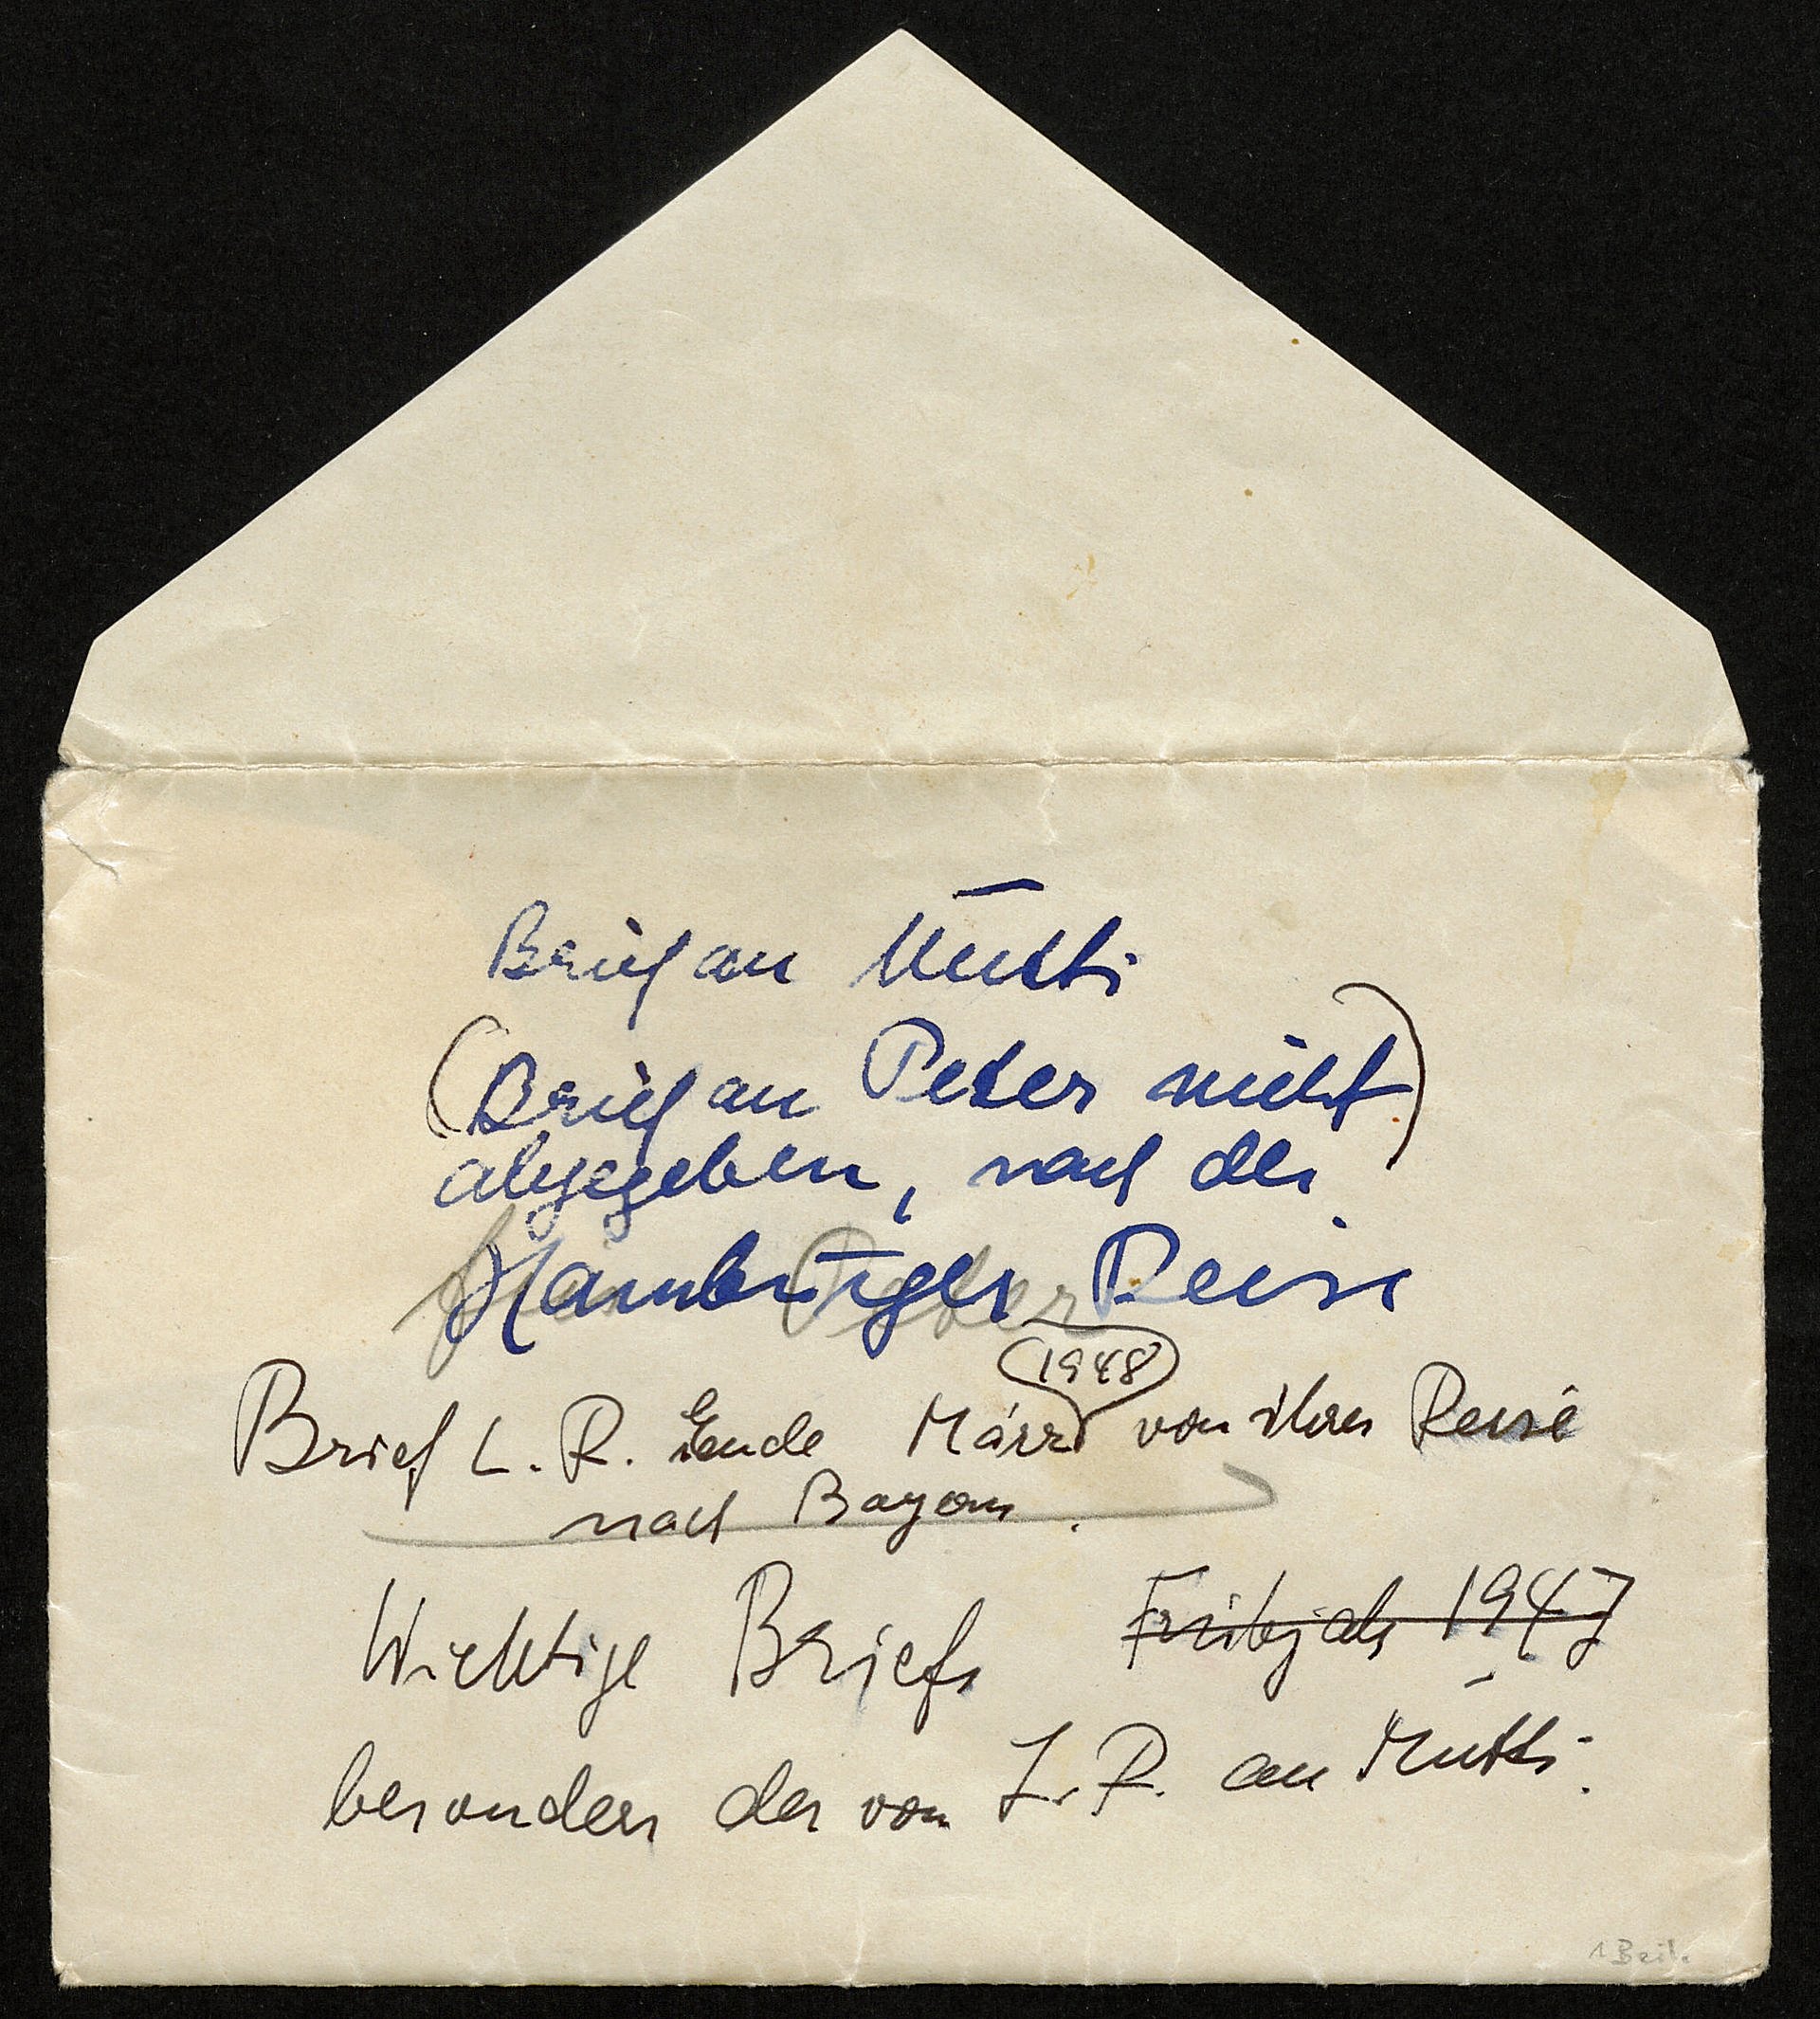 Brief an Mutti
(Brief an Peter nicht)
abgegeben, nach der
Hamburger Reise
Peter
1948
Brief L. R. Ende März von ihrer Reise
nach Bayern.
Wichtige Briefe Frühjahr 1947
besonders der von L. R. an Mutti.
1 Beil.